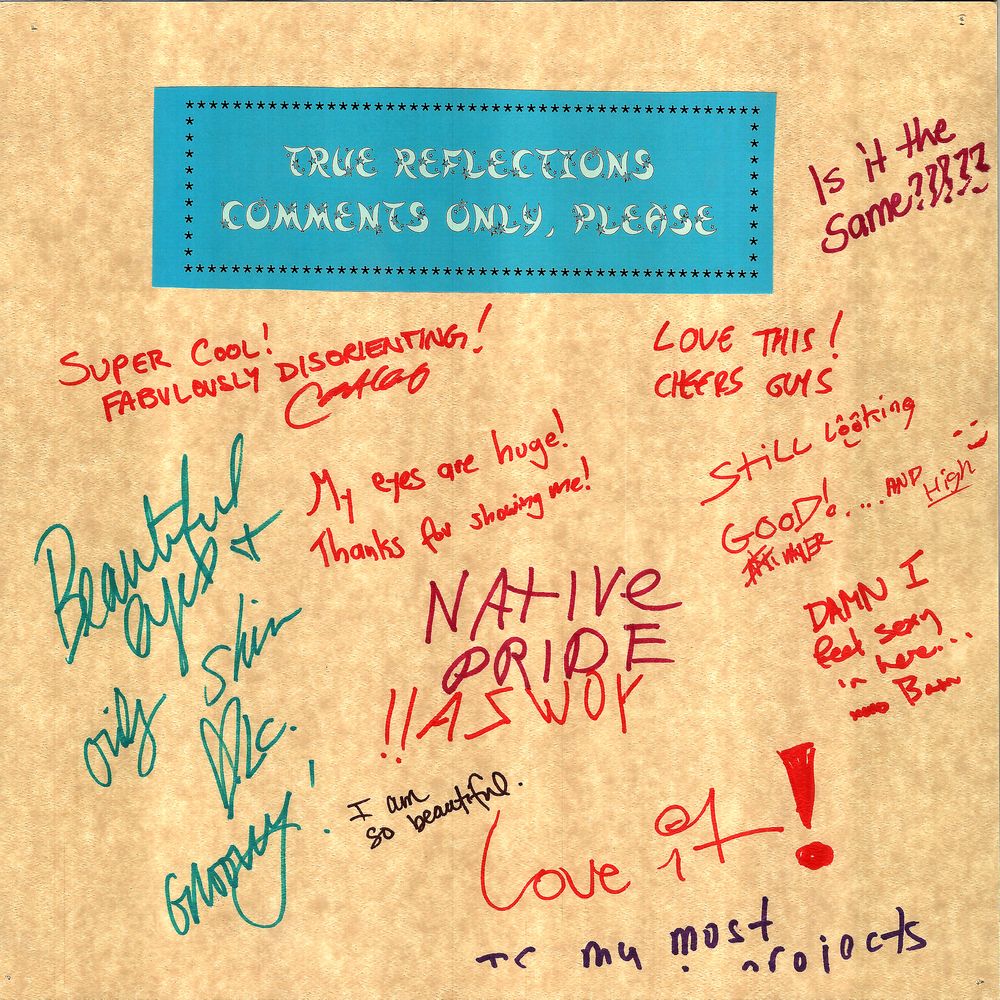 TRUE REFLECTIONS
COMMENTS ONLY, PLEASE
Is it the
Same?????
SUPER COOL!
FABULOUSLY DISORIENTING!
LOVE THIS!
CHEERS GUYS
My eyes are huge!
Thanks for showing me!
STILL LOOKING
GOOD! .... AND High
Beautiful
eyes +
oily skin
GROOVY!
NATIVE
PRIDE
DAMN I
feel sexy
in here...
I am
so beautiful.
Love it!
my most
projects